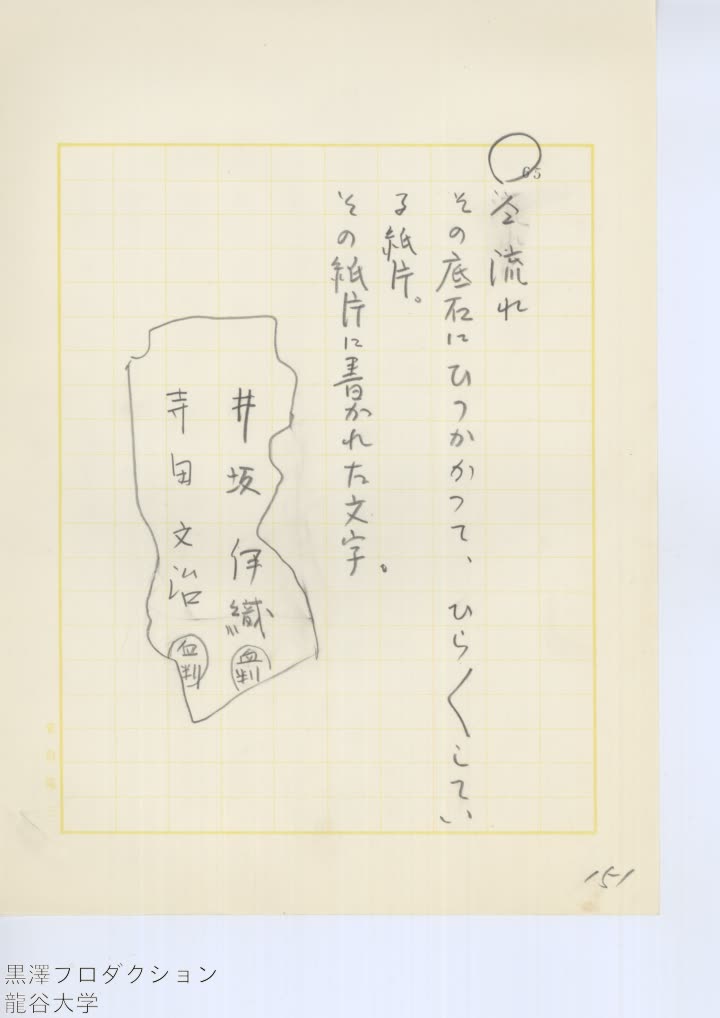 65
仝 流れ
その底石にひつかかつて、ひら〳〵してい
る紙片。
その紙片に書かれた文字。
井坂 伊織 血判
寺田 文治 血判
151
黒澤プロダクション
龍谷大学